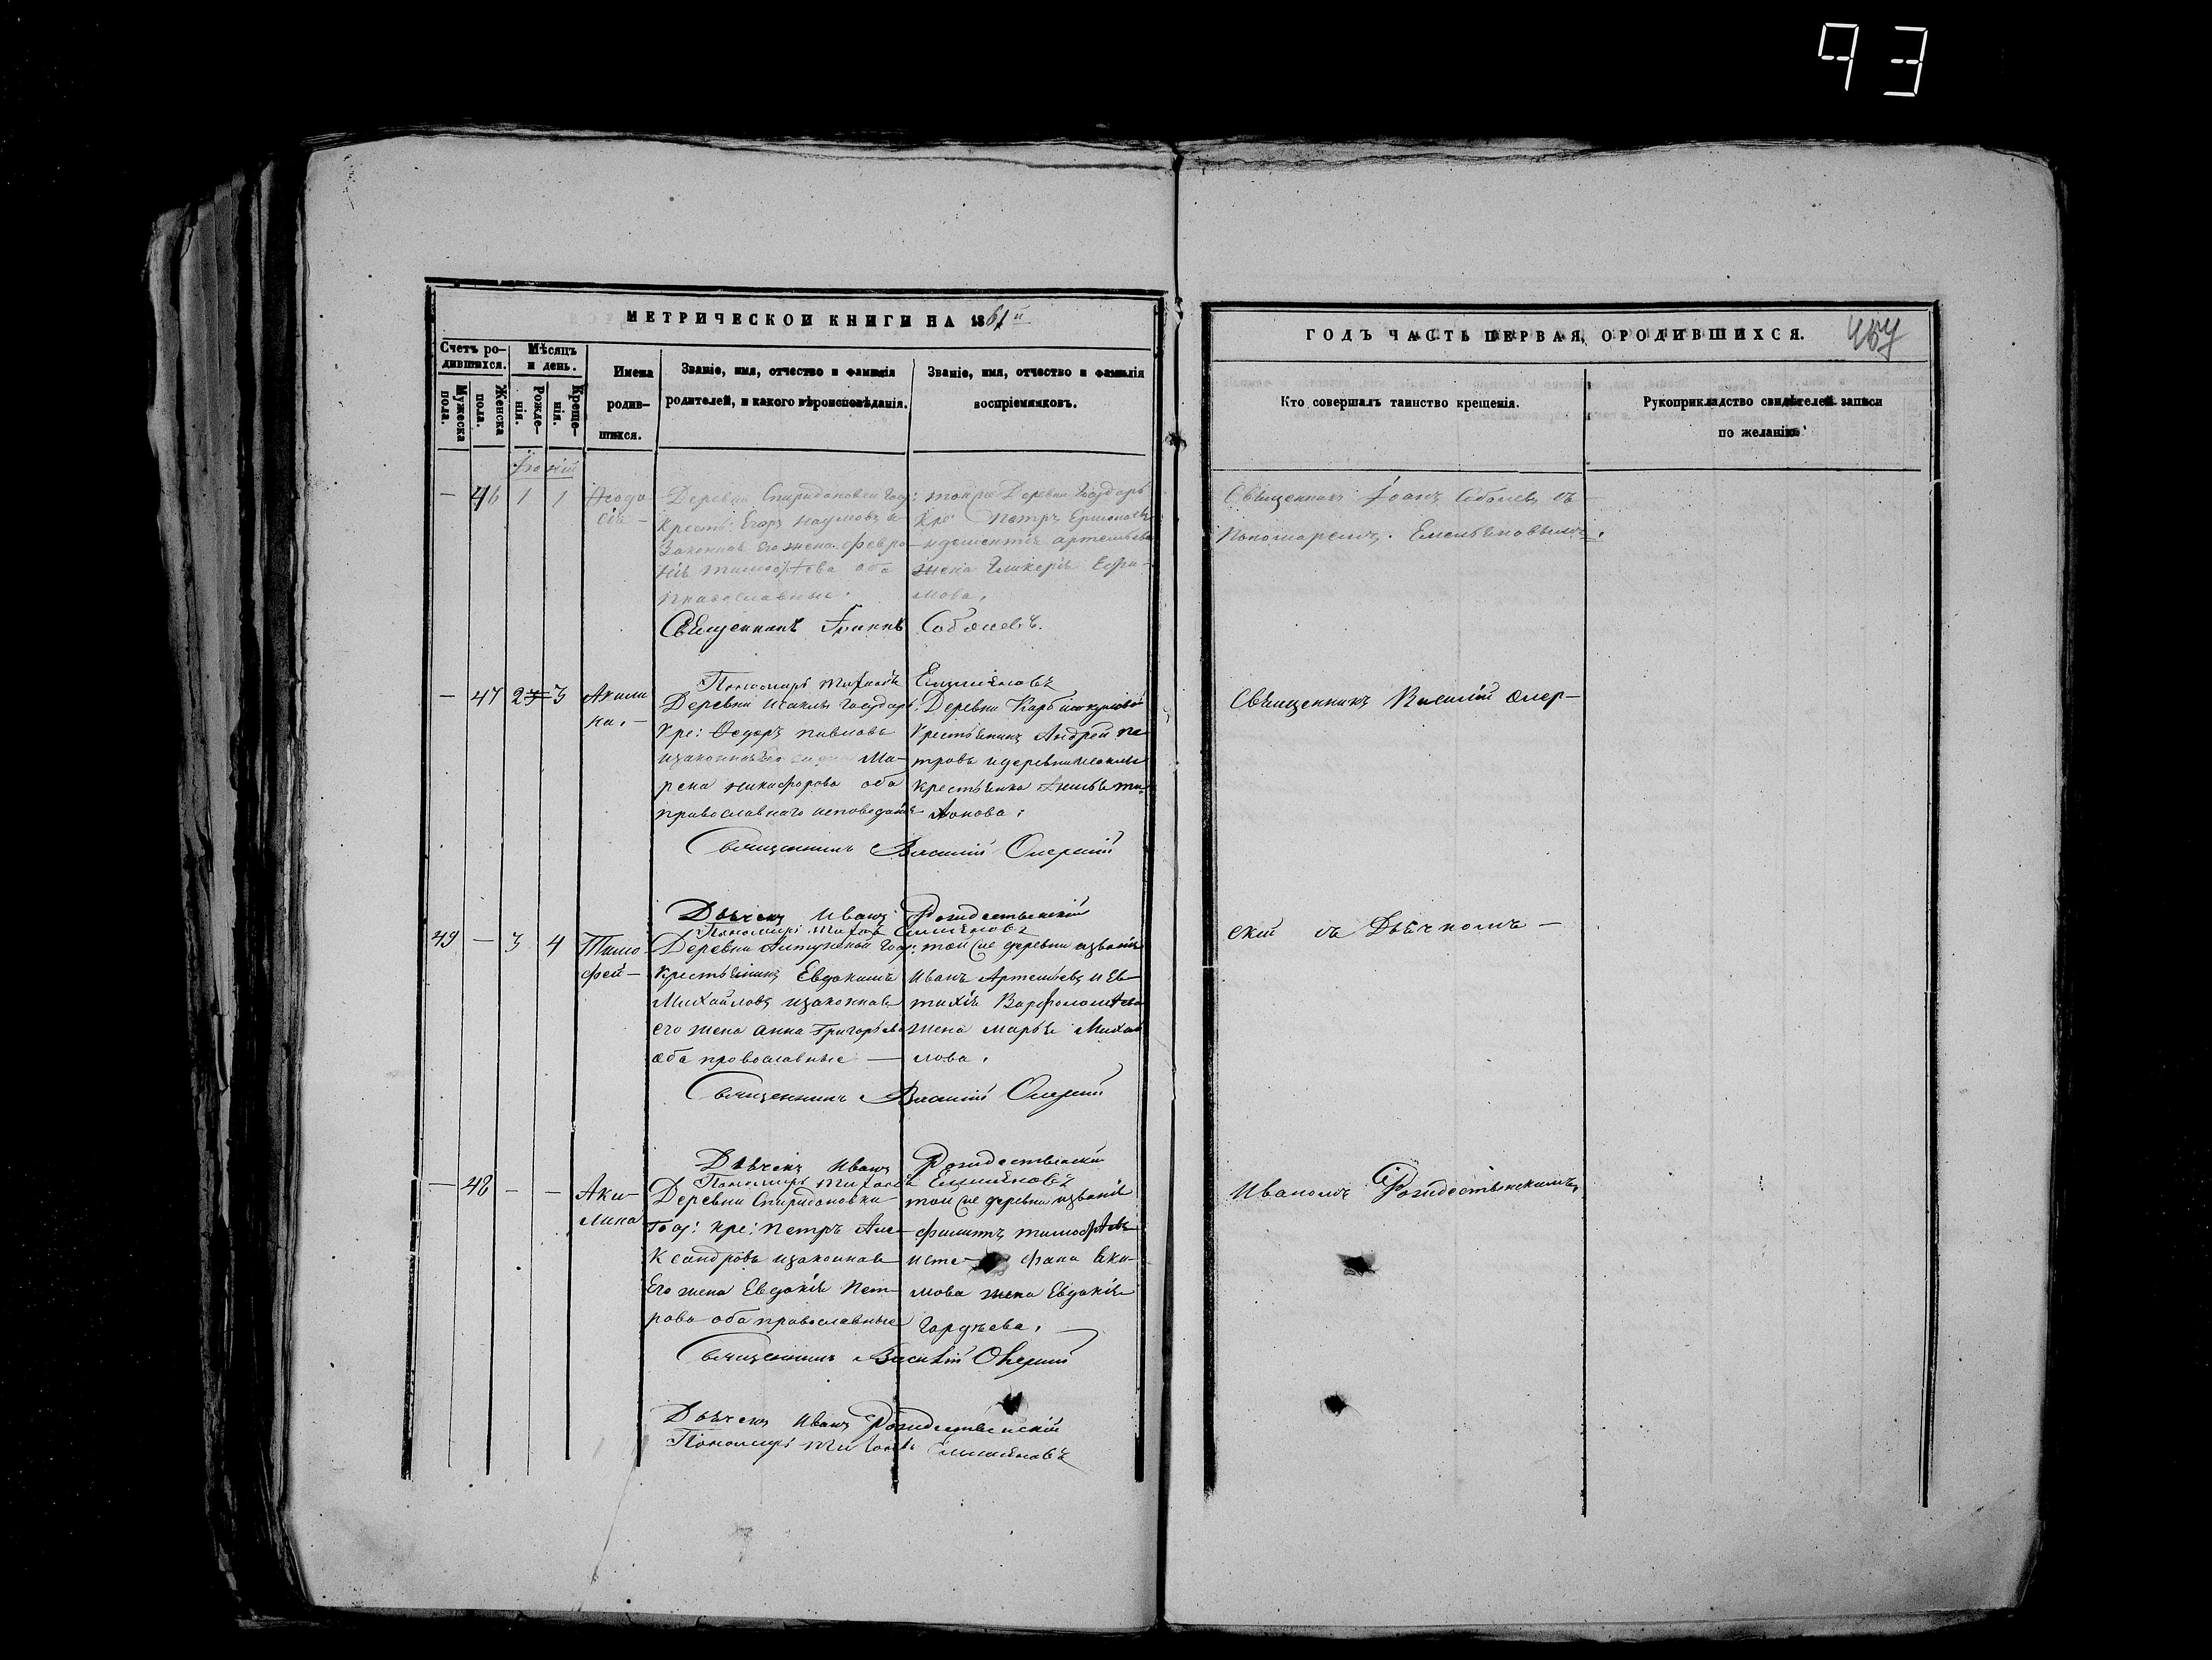 93
МЕТРИЧЕСКОЙ КНИГИ НА 1861й
ГОДЪ ЧАСТЬ ПЕРВАЯ, О РОДИВШИХСЯ.
467
Счетъ ро-
дившихся.
Мужеска
пола.
Женска
пола.
Мѣсяцъ
и день.
Рожде-
нія.
Креще-
нія.
Имена
родив-
шихся.
Званіе, имя, отчество и фамилія
родителей, и какого вѣроисповѣданія.
Званіе, имя, отчество и фамилія
воспріемниковъ.
Кто совершалъ таинство крещенія.
Рукоприкладство свидѣтелей записи
по желанію.
Іюній
— 46 1 1
Ѳеодо
сія —
Деревни Спиридоновки Гос:
Крест: Егоръ Наумовъ и
Законная его жена Февро
нія Тимофѣева оба
православные.
той же Деревни Государ
Кре: Петръ
жена Гликерія Ефи-
мова.
Священникъ Іоаннъ Соболевъ съ
Пономаремъ Емельяновымъ.
Священникъ Іоаннъ Соболевъ.
Пономарь Тихонъ Емильяновъ
— 47 2 3
Акили
на. —
Деревни Исаклы Государ:
Кре: Ѳедоръ Павловъ
изаконная его жена Ма-
рена Никифорова оба
православнаго исповеданія
Деревни
Крестьянинъ Андрей Пе
тровъ идеревни Исаклы
крестьянка
Священникъ Василій Озер-
Священникъ Василій Озерскій
Дьячекъ Иванъ Рождественскій
Пономарь Тихонъ Емильяновъ
49 — 3 4
Тимо
фей —
Деревни Гос:
Крестьянинъ Евдокимъ
Михайловъ изаконная
его жена Анна Григорьева
оба православные —
той же деревни изванія
Иванъ Артемьевъ и Ев-
тихія Варфоломѣева
жена Марья Михай
лова.
скій съ Дьячкомъ —
Священникъ Василій Озерскій
Дьячекъ Иванъ Рождественскій
Пономарь Тихонъ Емильяновъ
— 48 - -
Аки-
лина
Деревни Спиридоновки
Гос: кре: Петръ Але-
ксандровъ изаконная
Его жена Евдокія Пет-
рова оба православные
той же деревни изванія
Филиппъ Тимофѣевъ
исте- фана Яки-
мова жена Евдокія
Гордѣева.
Иваномъ Рождественскимъ,
Священникъ Василій Озерскій
Дьячекъ Иванъ Рождественскій
Пономарь Тихонъ Емильяновъ